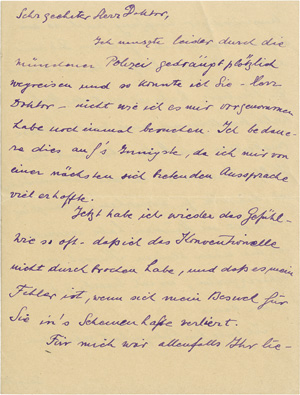 Sehr geehrter Herr Doktor,
Ich musste leider durch die
münchner Polizei gedrängt plötzlich
wegreisen und so konnte ich Sie - Herr
Doktor - nicht wie ich es mir vorgenommen
habe noch einmal besuchen. Ich bedau-
re dies auf's Innigste, da ich mir von
einer nächsten sich bietenden Aussprache
viel erhoffte.
Jetzt habe ich wieder das Gefühl -
wie so oft - daß ich das Konventionelle
nicht durchbrochen habe, und daß es mein
Fehler ist, wenn sich mein Besuch für
Sie in's Schemenhafte verliert.
Für mich war allenfalls Ihr lie-